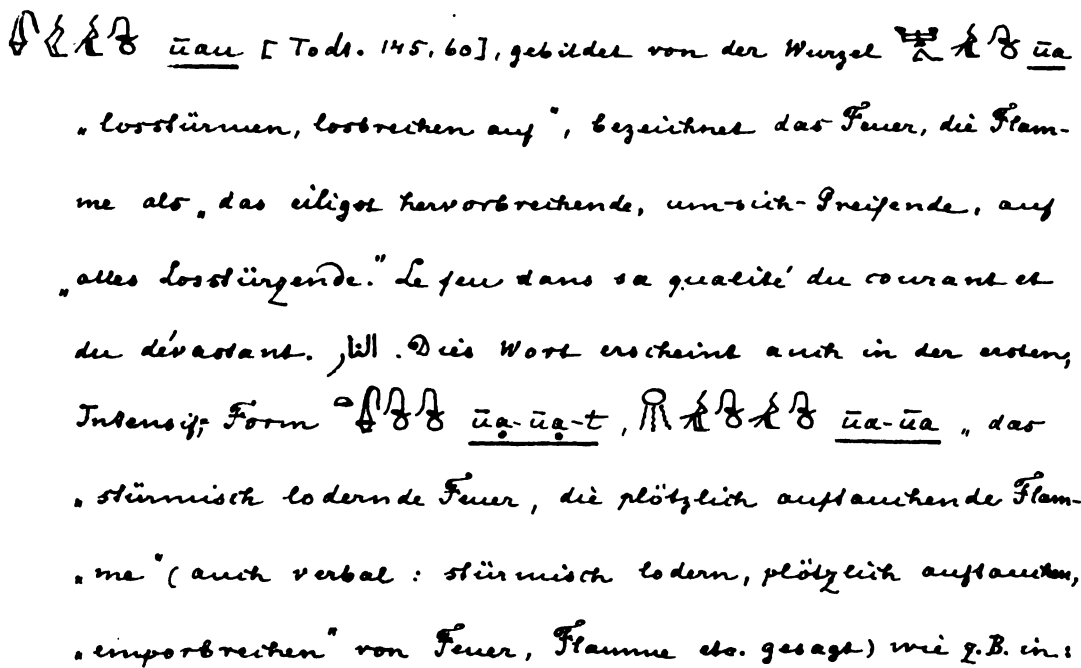 ūau [Todt. 145, 60], gebildet von der Wurzel ūa
„losstürmen, losbrechen auf", bezeichnet das Feuer, die Flam-
me als „das eiligst hervorbrechende, um-sich-Greifende, auf
„alles Losstürzende." Le feu dans sa qualité du courant et
du dévastant. النار. Dies Wort erscheint auch in der ersten,
Intensif-Form ūạ-ūạ-t, ūa-ūa „das
„stürmisch lodernde Feuer, die plötzlich auftauchende Flam-
„me" (auch verbal: stürmisch lodern, plötzlich auftauchen,
„emporbrechen" von Feuer, Flamme etc. gesagt) wie z.B. in: